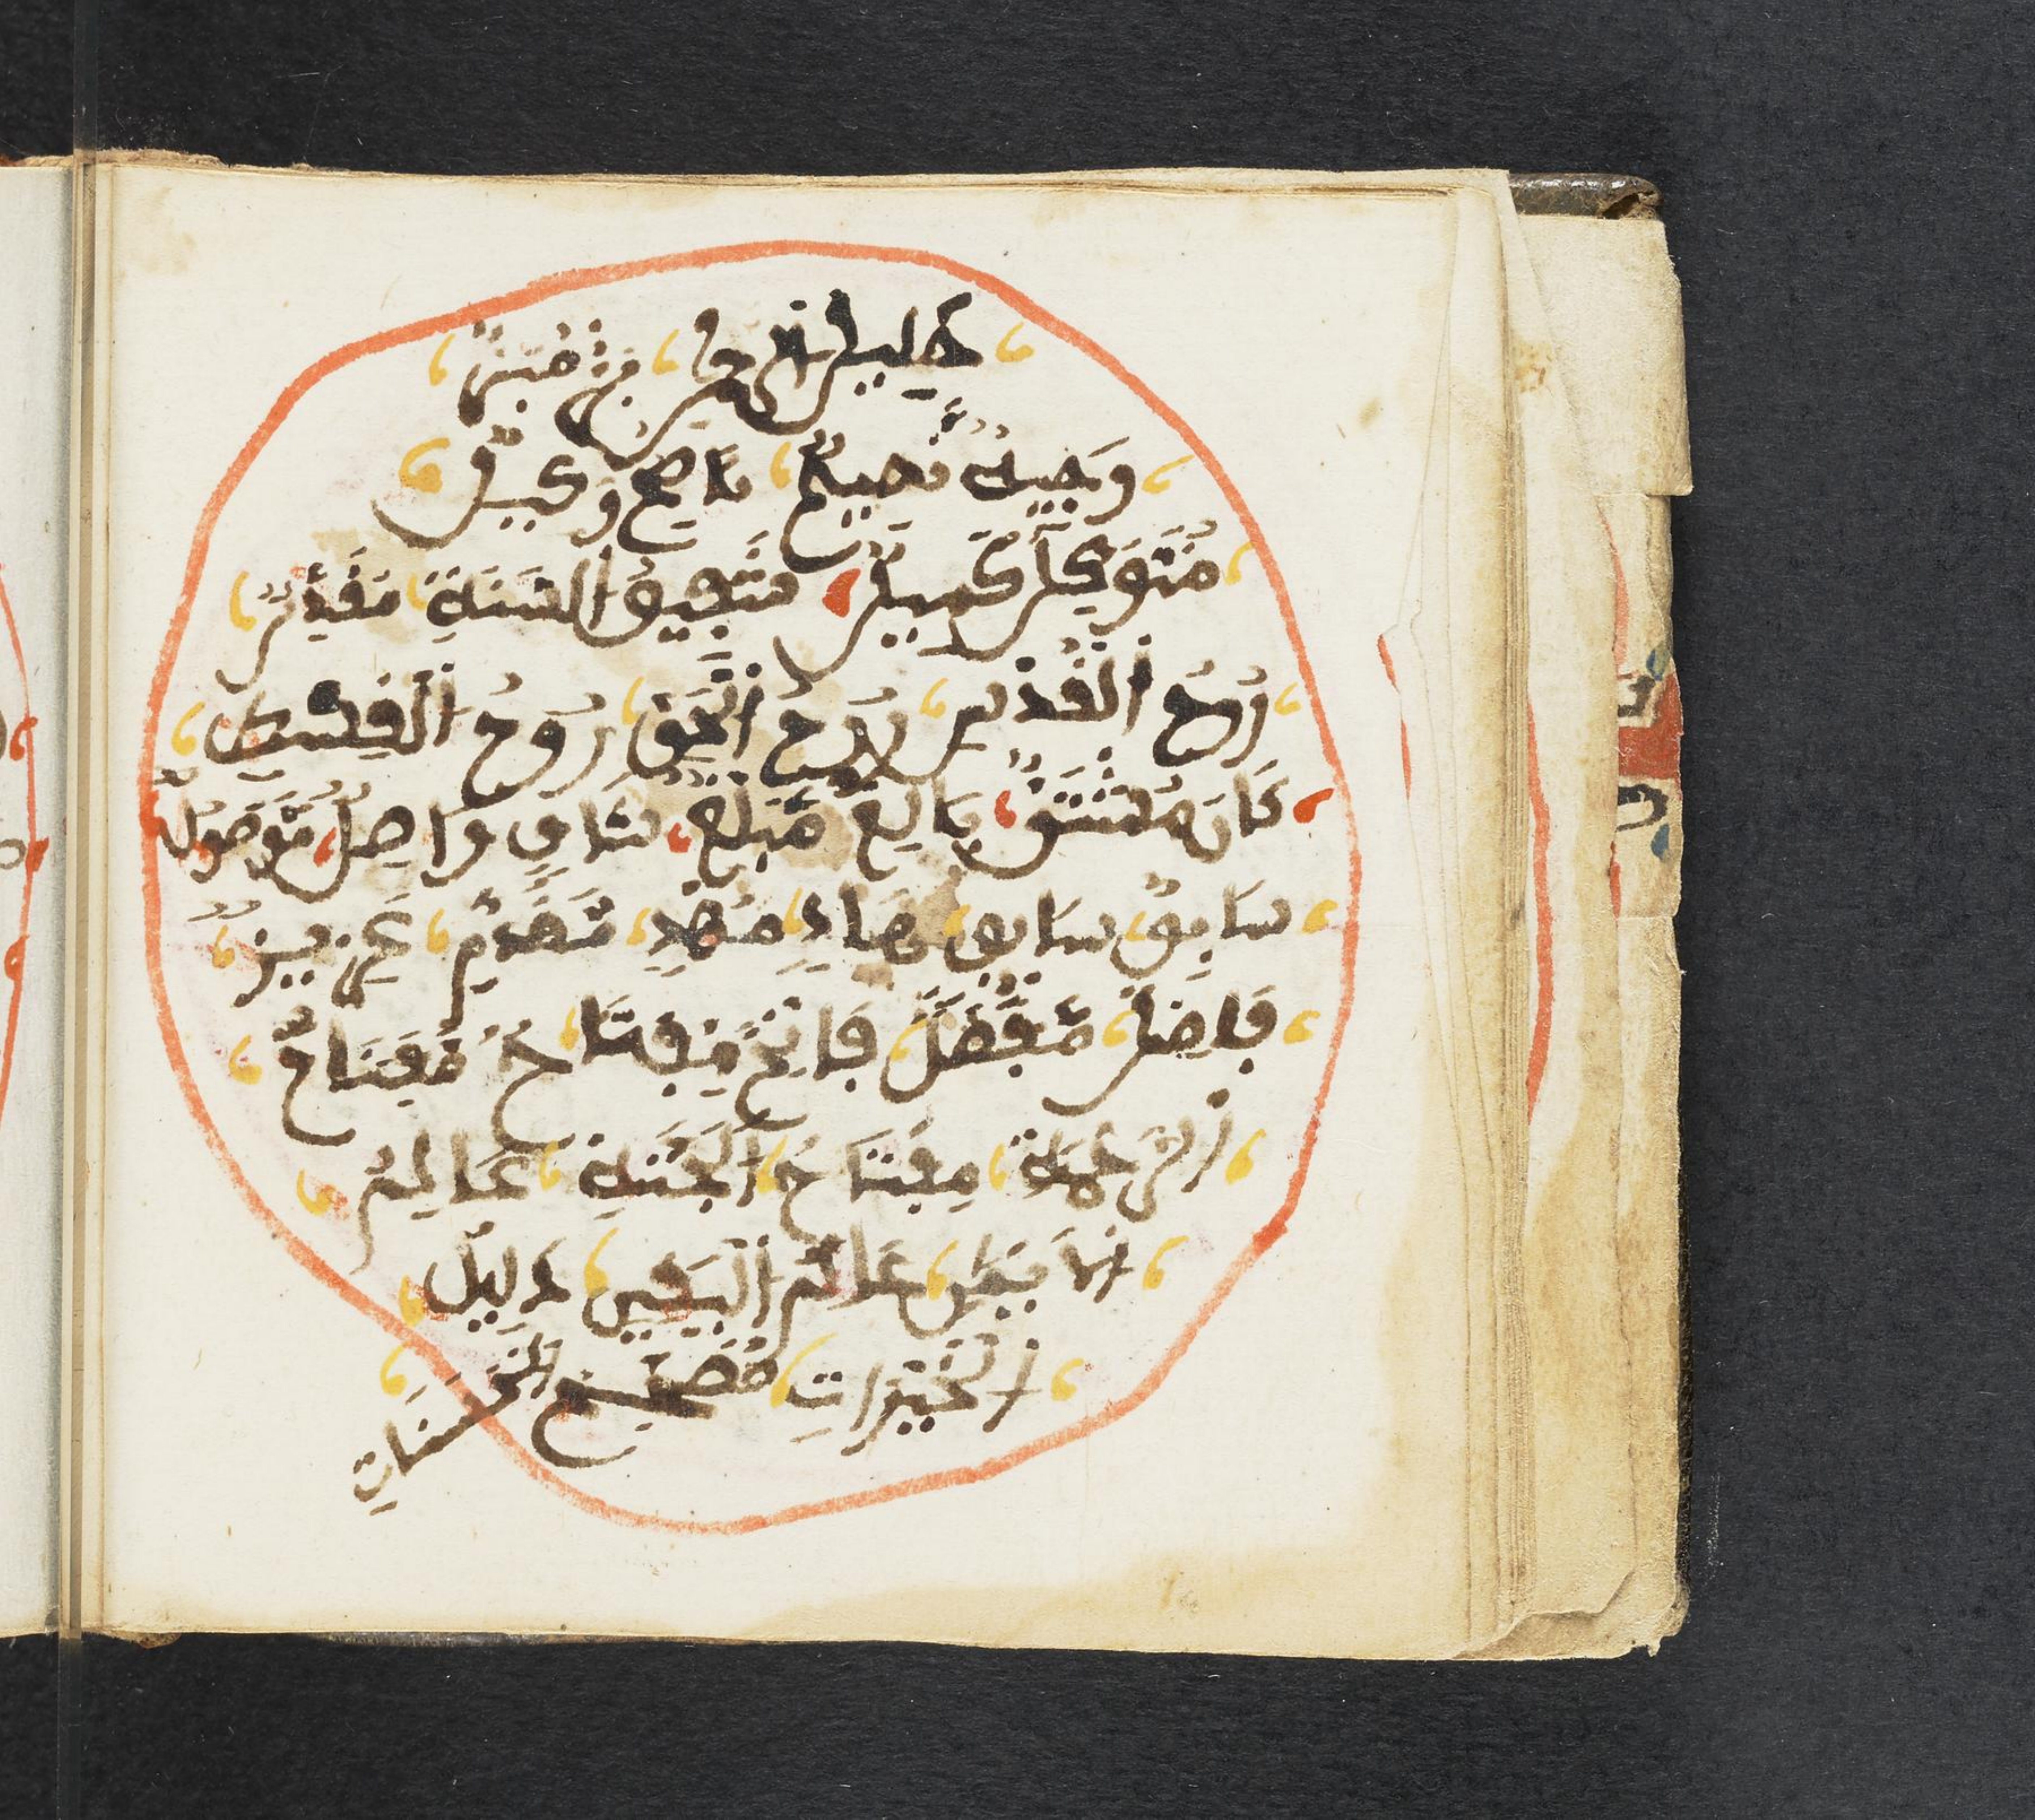 خليل الرحمن بر مبر
وجيه نصيح ناصح وكيل
متوكل كفيل شفيق السنة مقدس
روح القدس روح الحق روح القسط
كاف مكتف بالغ مبلغ شاف واصل موصول
سابق سايق هاد مهد مقدم عزيز
فاضل مفضل فاتح مفتاح مفتاح
الرحمة مفتاح الجنة عالم
الايمان عالم اليقين دليل
الخيرات مصحح الحسنات